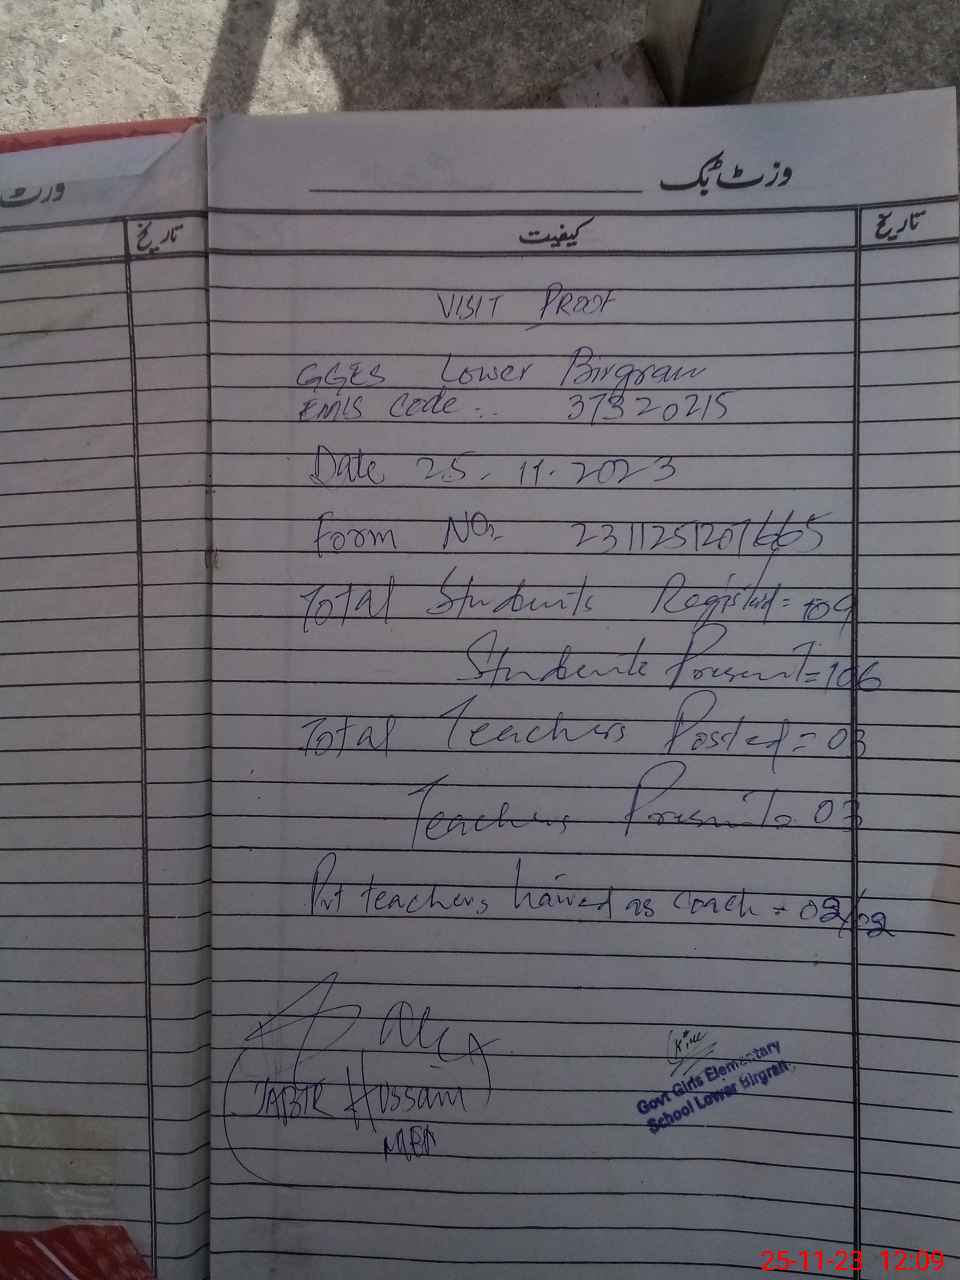 وزٹ بک
وزٹ
تاریخ
کیفیت
تاریخ
VISIT PROOF
GGES Lower Birgran
EMIS Code:. 37320215
Date 25.11.2023
Form NO:- 2311251207665
Total Students Registerd = 109
Students Present = 106
Total Teachers Posted = 03
Teachers Present = 03
Pvt teachers hairred as coach = 02/02
JABIR Hussain
MEA
Govt Girls Elementary
School Lower Birgran
25-11-23 12:09